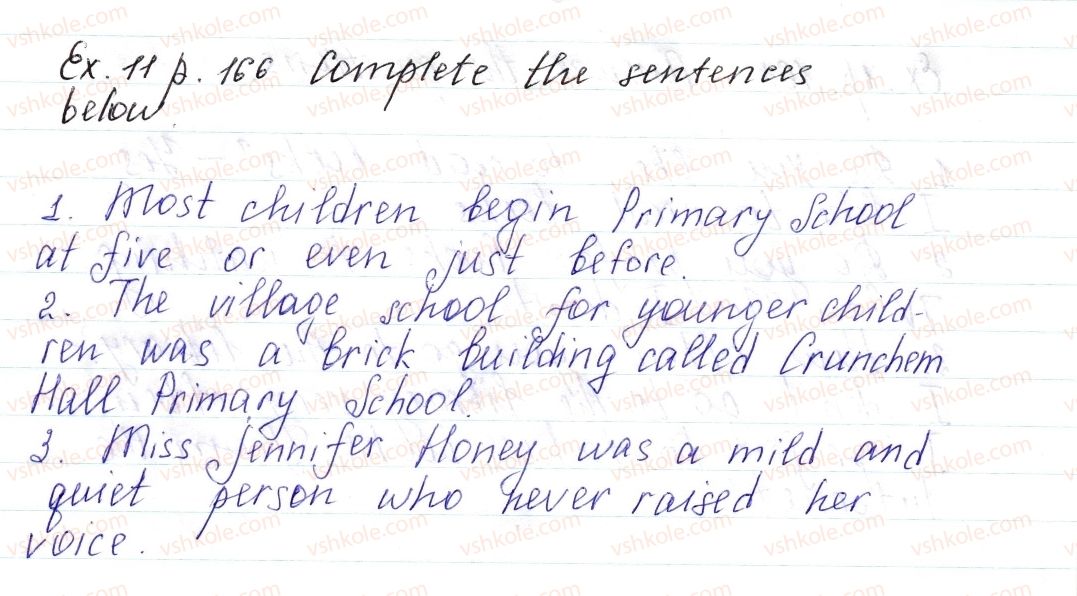 Ex. 11 p. 166 Complete the sentences
below.
1. Most children begin Primary School
at five or even just before.
2. The village school for younger child-
ren was a brick building called Crunchem
Hall Primary School.
3. Miss Jennifer Honey was a mild and
quiet person who never raised her
voice.
vshkole.com